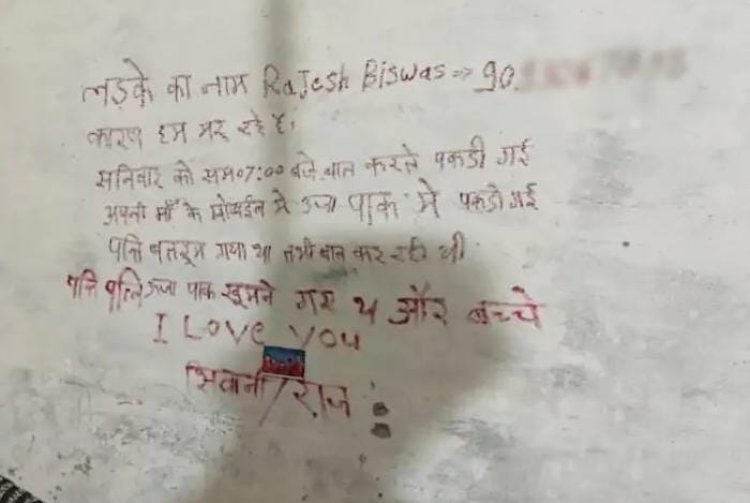 लड़के का नाम RaJesh Biswas => 90
कारण हम मर रहे है,
सनिवार को सम 07:00 बजे बात करते पकडी गई
अपनी माँ के मोबाईल मे उर्जा पाक में पकडी गई
पत्ति बतरूम गया था तभी बात कर रही थी
पत्ति पत्नि उर्जा पाक घूमने गए थे और बच्चे
I Love You
शिवानी/राज